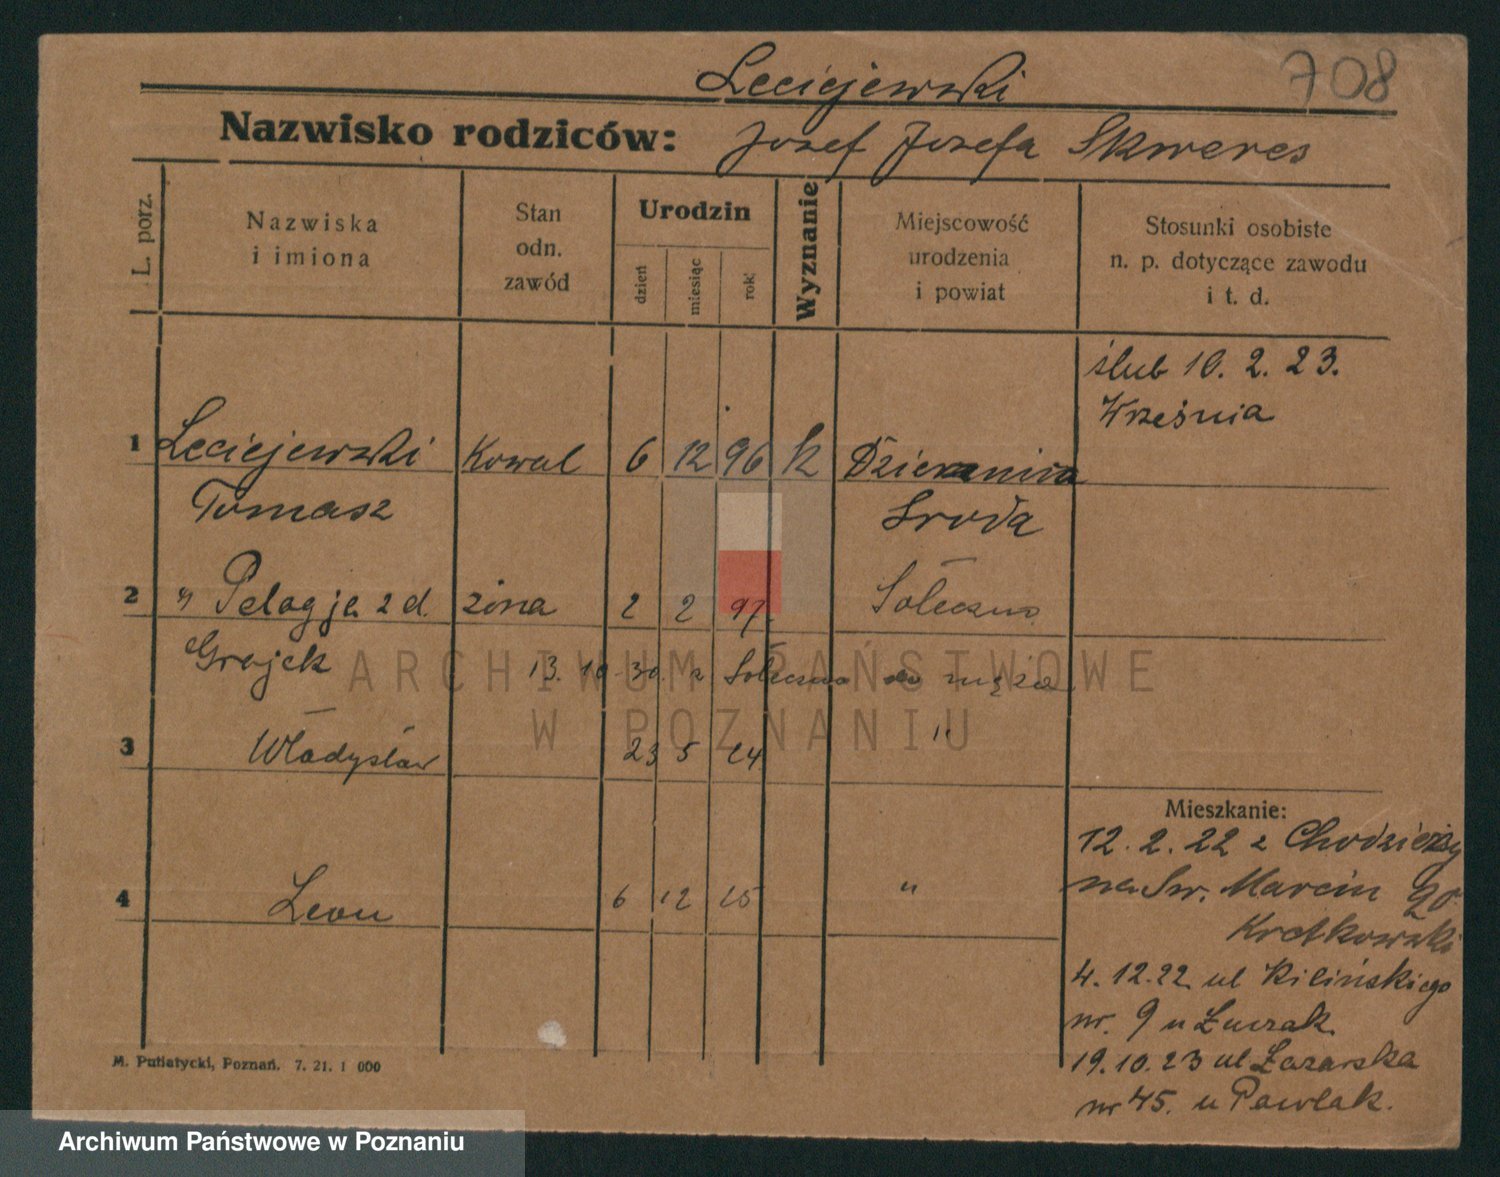 Leciejewski
708
Nazwisko rodziców: Jozef Jozefa Skweres
L. porz.
Nazwiska i imiona
Stan odn. zawód
Urodzin
dzień
miesiąc
rok
Wyznanie
Miejscowość urodzenia i powiat
Stosunki osobiste n. p. dotyczące zawodu i t. d.
ślub 10. 2. 23.
Września
1 Leciejewski Kowal 6 12 96 k
Tomasz Sroda
2 " Pelagja 2 d. żona 2 2 97. Soleczno
Grajek 13. 10 30 z Soleczno do męża
3 Władysław 23 5 24 "
4 Leon 6 12 25 "
Mieszkanie:
12. 2. 22 z Chodzieży
na Św. Marcin 20
Kratkowski
4. 12.22 ul Kilińskiego
nr. 9 u Łuczak
19.10.23 ul Łazarska
nr 45. u Pawlak.
M. Putiatycki, Poznań. 7. 21. 1 000
ARCHIWUM PAŃSTWOWE
W POZNANIU
Archiwum Państwowe w Poznaniu